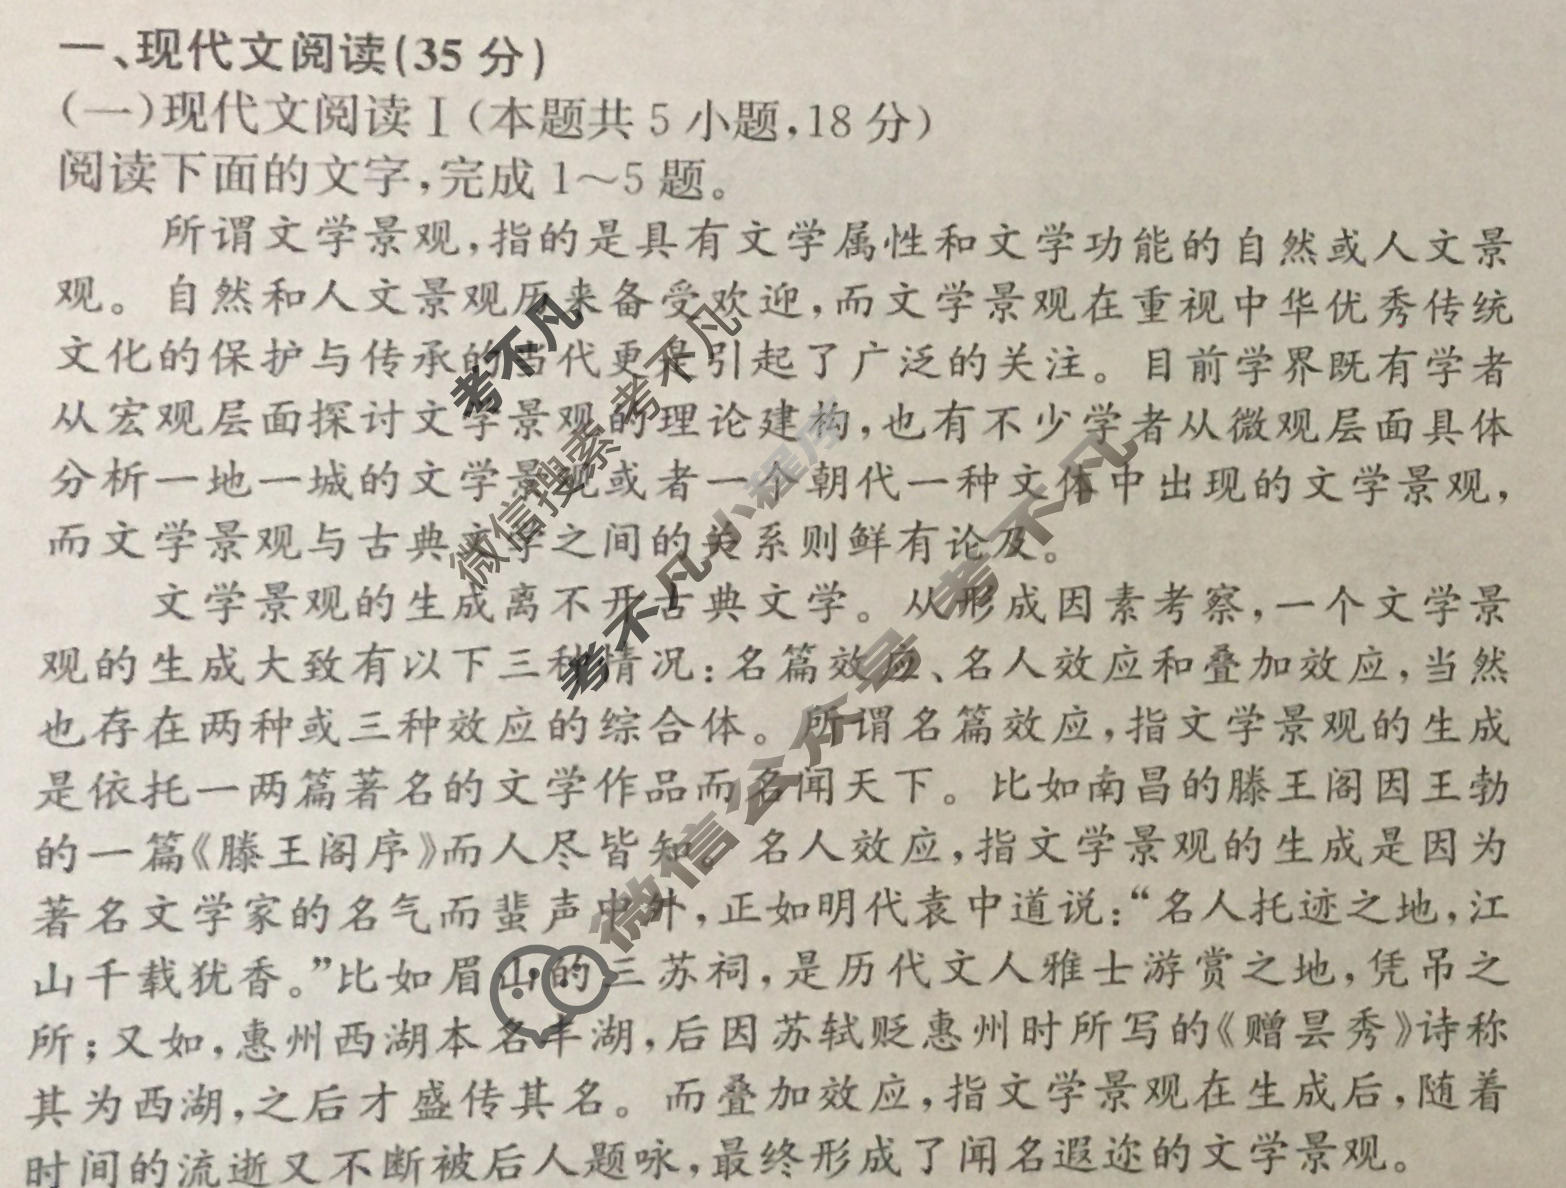 一、现代文阅读(35分)
(一)现代文阅读Ⅰ(本题共5小题,18分)
阅读下面的文字,完成1~5题。
所谓文学景观,指的是具有文学属性和文学功能的自然或人文景
观。自然和人文景观历来备受欢迎,而文学景观在重视中华优秀传统
文化的保护与传承的当代更是引起了广泛的关注。目前学界既有学者
从宏观层面探讨文学景观的理论建构,也有不少学者从微观层面具体
分析一地一城的文学景观或者一个朝代一种文体中出现的文学景观,
而文学景观与古典文学之间的关系则鲜有论及。
文学景观的生成离不开古典文学。从形成因素考察,一个文学景
观的生成大致有以下三种情况:名篇效应、名人效应和叠加效应,当然
也存在两种或三种效应的综合体。所谓名篇效应,指文学景观的生成
是依托一两篇著名的文学作品而名闻天下。比如南昌的滕王阁因王勃
的一篇《滕王阁序》而人尽皆知。名人效应,指文学景观的生成是因为
著名文学家的名气而蜚声中外,正如明代袁中道说:“名人托迹之地,江
山千载犹香。”比如眉山的三苏祠,是历代文人雅士游赏之地,凭吊之
所;又如,惠州西湖本名丰湖,后因苏轼贬惠州时所写的《赠昙秀》诗称
其为西湖,之后才盛传其名。而叠加效应,指文学景观在生成后,随着
时间的流逝又不断被后人题咏,最终形成了闻名遐迩的文学景观。
考不凡
微信搜索 考不凡
考不凡小程序
微信公众号 考不凡